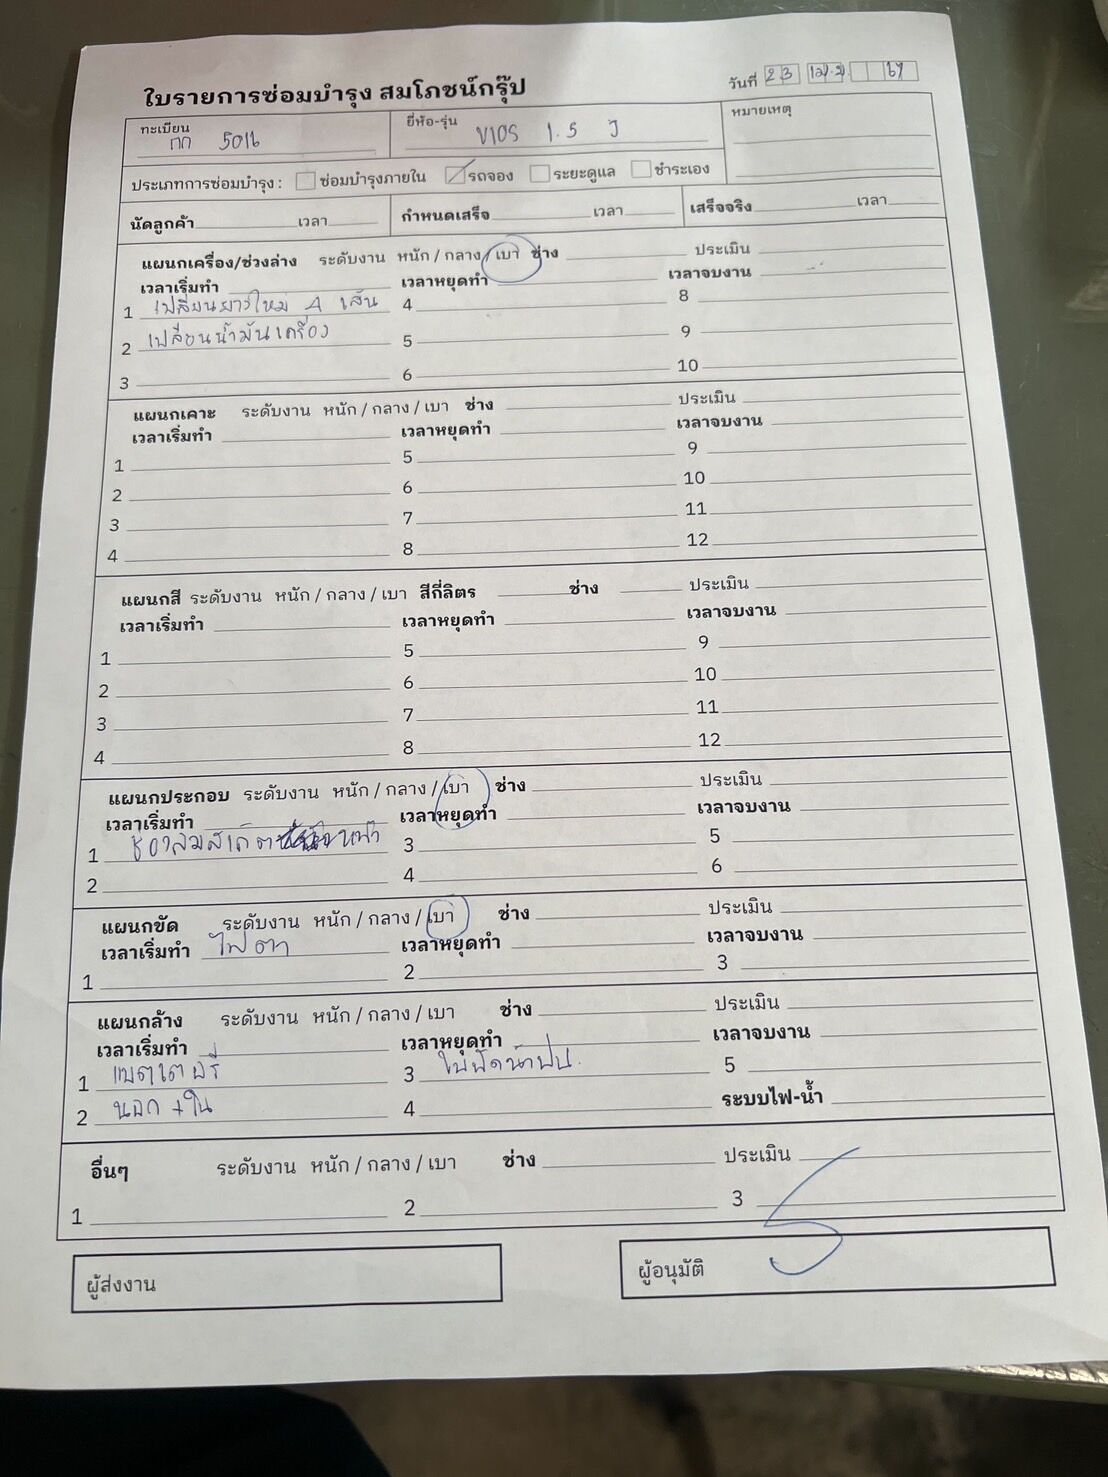 ใบรายการซ่อมบำรุง สมโภชน์กรุ๊ป
วันที่ 23 เม.ย. 67
ทะเบียน
กก 5016
ยี่ห้อ-รุ่น
VIOS 1.5 J
หมายเหตุ
ประเภทการซ่อมบำรุง : ซ่อมบำรุงภายใน รถจอง ระยะดูแล ชำระเอง
นัดลูกค้า เวลา กำหนดเสร็จ เวลา เสร็จจริง เวลา
แผนกเครื่อง/ช่วงล่าง ระดับงาน หนัก / กลาง / เบา ช่าง ประเมิน
เวลาเริ่มทำ เวลาหยุดทำ เวลาจบงาน
1 เปลี่ยนยางใหม่ 4 เส้น 4 8
2 เปลี่ยนน้ำมันเครื่อง 5 9
3 6 10
แผนกเคาะ ระดับงาน หนัก / กลาง / เบา ช่าง ประเมิน
เวลาเริ่มทำ เวลาหยุดทำ เวลาจบงาน
1 5 9
2 6 10
3 7 11
4 8 12
แผนกสี ระดับงาน หนัก / กลาง / เบา สีกี่ลิตร ช่าง ประเมิน
เวลาเริ่มทำ เวลาหยุดทำ เวลาจบงาน
1 5 9
2 6 10
3 7 11
4 8 12
แผนกประกอบ ระดับงาน หนัก / กลาง / เบา ช่าง ประเมิน
เวลาเริ่มทำ เวลาหยุดทำ เวลาจบงาน
1 ช่องลม 3 5
2 4 6
แผนกขัด ระดับงาน หนัก / กลาง / เบา ช่าง ประเมิน
เวลาเริ่มทำ ไฟตา เวลาหยุดทำ เวลาจบงาน
1 2 3
แผนกล้าง ระดับงาน หนัก / กลาง / เบา ช่าง ประเมิน
เวลาเริ่มทำ เวลาหยุดทำ เวลาจบงาน
1 แบตเตอรี่ 3 ใบปัดน้ำฝน 5
2 นอก + ใน 4 ระบบไฟ-น้ำ
อื่นๆ ระดับงาน หนัก / กลาง / เบา ช่าง ประเมิน
1 2 3
ผู้ส่งงาน
ผู้อนุมัติ